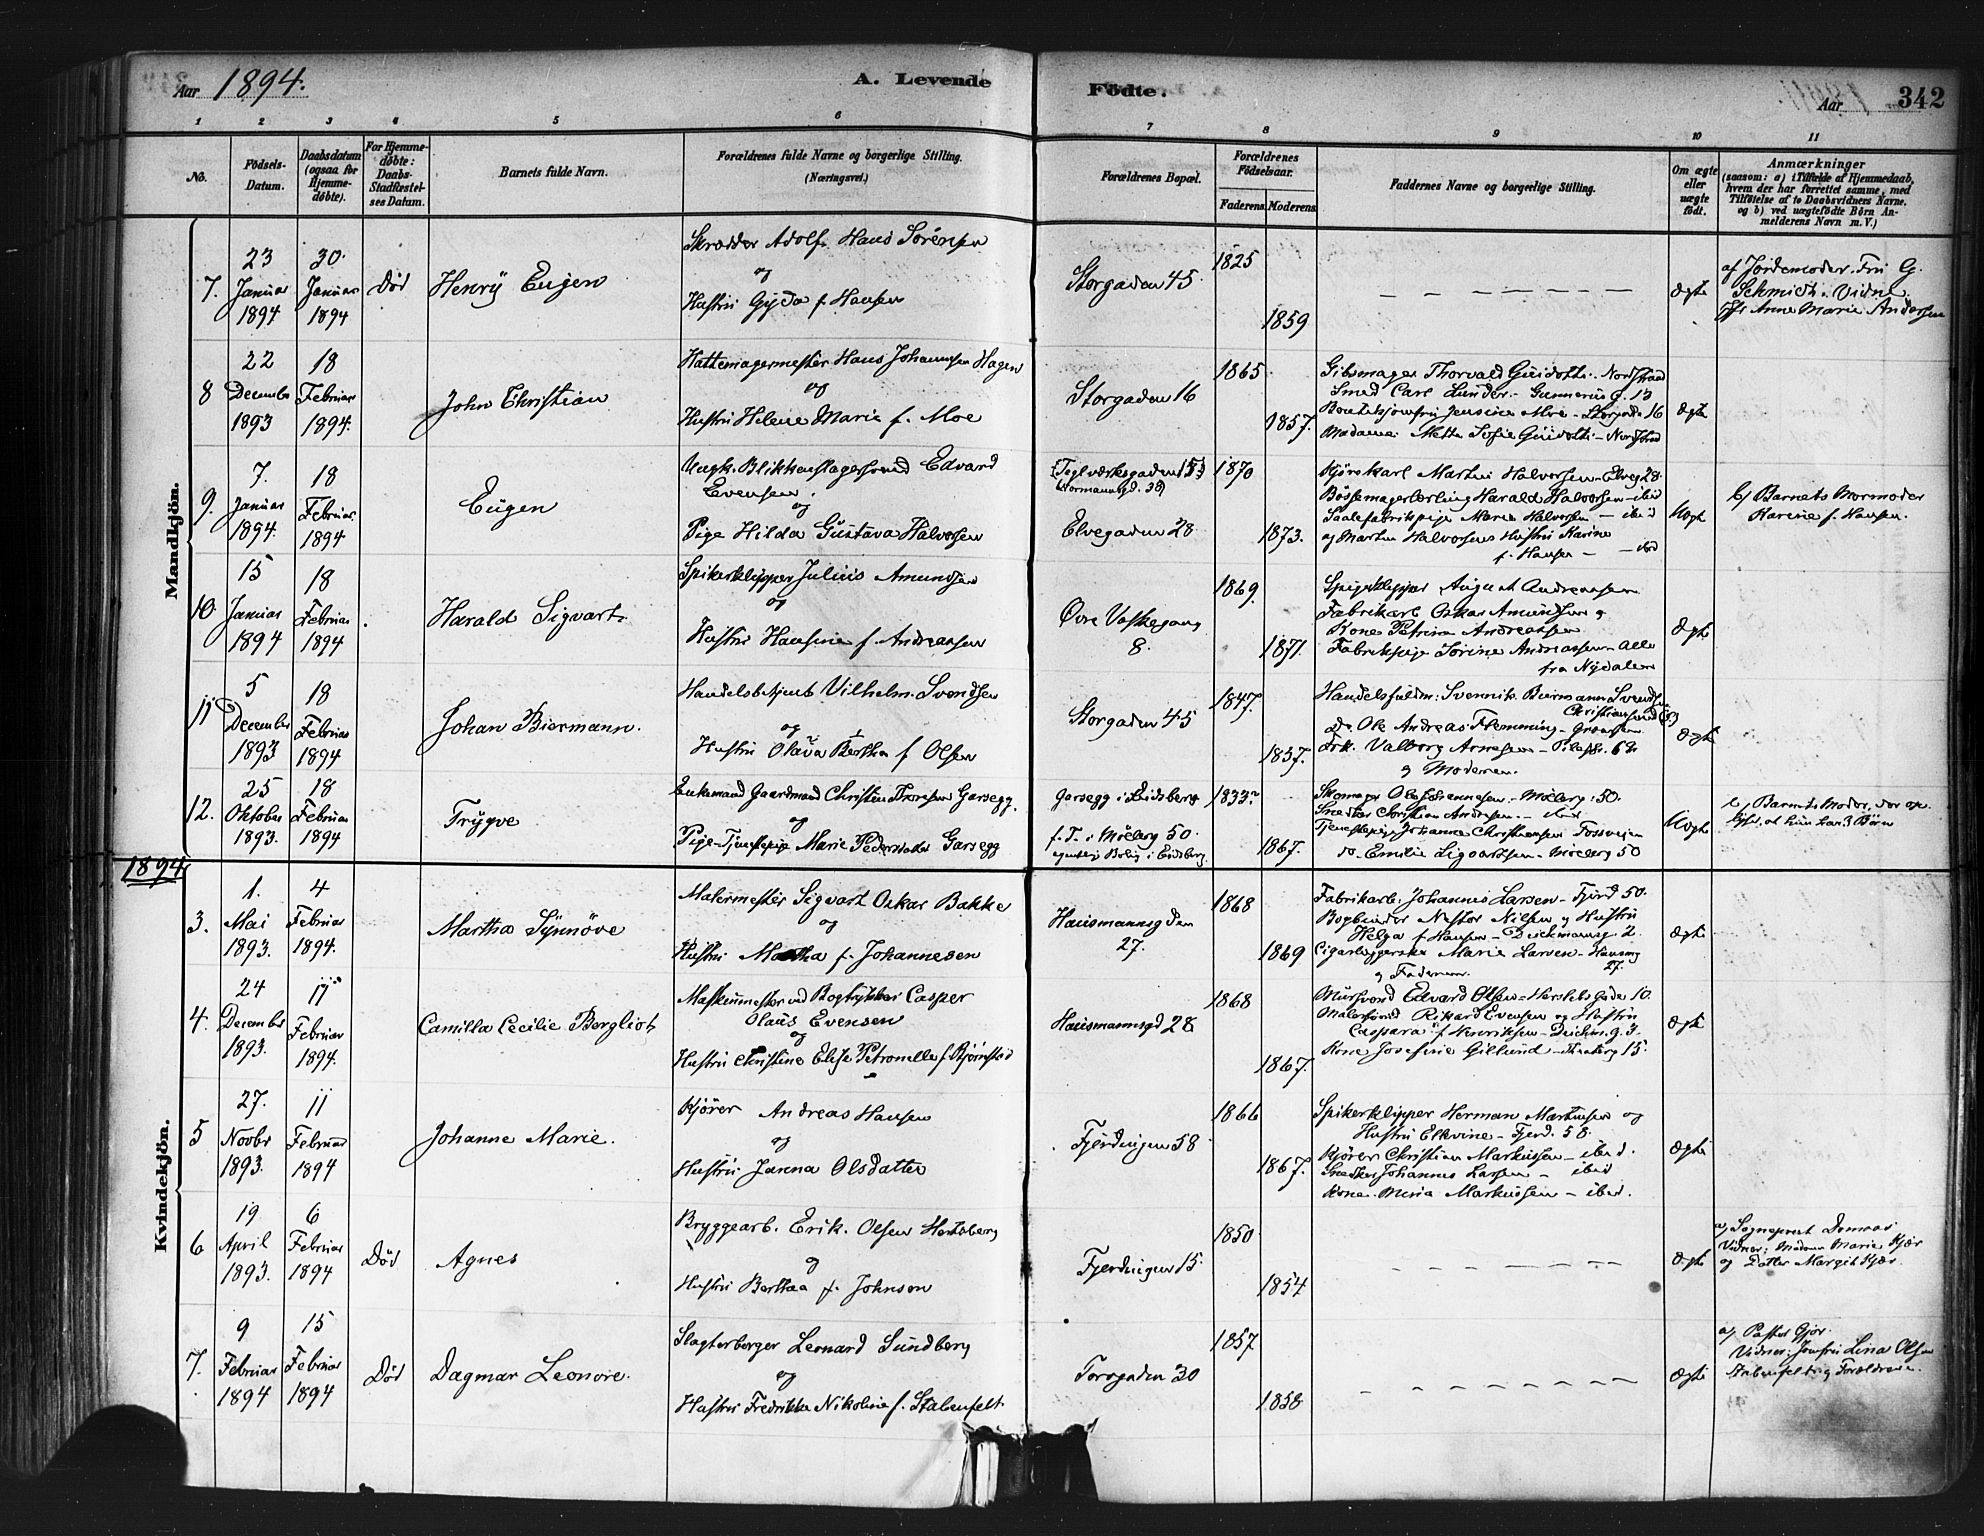 Aar 1894.
A. Levende
Födte.
Aar
342
1 2 3 4 5 6 7 8 9 10 11
No.
Födsels-Datum.
Daabsdatum (ogsaa for Hjemmedöbte).
For Hjemmedöbte: Daabs-Stadfæstelses Datum.
Barnets fulde Navn.
Forældrenes fulde Navne og borgerlige Stilling. (Næringsvei.)
Forældrenes Bopæl.
Forældrenes Födselsaar.
Faderens. Moderens.
Faddernes Navne og borgerlige Stilling.
Om ægte eller uægte födt.
Anmærkninger
(saasom: a) i Tilfælde af Hjemmedaab,
hvem der har forrettet samme, med
Tilföielse af to Daabsvidners Navne.
og b) ved uægtefödte Börn Anmelderens Navn m. V.)
Mandkjön.
7. 23 Januar 1894
30. Januar 1894
Död
Henrÿ Eugen
Skrædder Adolf Hans Sörensen
og
Hustru Gyda f. Hansen
Storgaden 45.
1825
1859
Ægte
af Jordemoder Fru G.
Schmidt. Vidne
Anne Marie Andersen
8 22 December 1893
18 Februar 1894.
John Christian
Hattemagermester Hans Johannsen Hagen
og
Hustru Helene Marie f. Moe
Storgaden 16
1865
1857.
Gibsmager Thorvald Guidotti. Nordstrand
Smed Carl Lunder. Gunnerus g. 13
Jensine Moe - Storgade 16
Madame Mette Sofie Guidotti - Nordstrand
Ægte
9. 7. Januar 1894.
18 Februar 1894
Eugen
Ungk. Blikkenslagersvend Edvard
Evensen.
og
Pige Hilda Gustava Halvorsen
Teglværksgaden 15
Normannsgd. 38
Elvegaden 28
1870
1873.
Kjörekarl Martin Halvorsen Elveg 28.
Bössemagerlærling Harald Halvorsen ibid
Saalefabrikpige Marie Halvorsen - ibid
og Martin Halvorsens Hustru Karine
f. Hansen - ibid
Uægte
b) Barnets Mormoder
Karine f. Hansen.
10. 15 Januar 1894
18 Februar 1894
Harald Sigvart.
Spikerklipper Julius Amundsen
og
Hustru Hansine f. Andreassen
Övre Vaskegang
8.
1869.
1871.
Spigerklipper August Andreassen
Fabrikarb. Oskar Amundsen og
Kone Petrine Andreassen
Fabrikpige Sörine Andreassen Alle
fra Nydalen
Ægte
11 5 December 1893
18 Februar 1894
Johan Biermann.
Handelsbetjent Vilhelm Svendsen
og
Hustru Olava Bertha f. Olsen
Storgaden 45
1847.
1857.
Handelsfuldm: Svennik Buermann Svendsen
Christianssund (S)
do. Ole Andreas Flemming - Grönsen
Frk. Valborg Arnesen - Pilestr. 62
og Moderen.
Ægte
12. 25 Oktober 1893.
18 Februar 1894
Trÿgve
Enkemand Gaardmand Christen Thoresen Garsegg.
og
Pige-Tjenestepige Marie Pedersdatter Garsegg
Garsegg i Eidsberg
f. T. i Mölleg 50.
egentlig Bolig i Eidsberg.
1833.
1867.
Skomager Ole Johannesen - Mölleg. 50.
Snedker Christian Andresen - ibid
Tjenestepige Johanne Christiansen Fossveien
do. Emilie Sigvartsen - Mölleg 50
Uægte
b) Barnets Moder, der op-
lyser, at hun har 3 Börn
1894
Kvindekjön.
3. 1. Mai 1893.
4 Februar 1894.
Martha Sÿnnöve
Malermester Sigvart Oskar Bakke
og
Hustru Martha f. Johannesen
Hausmannsgden
27.
1868
1869
Fabrikarb. Johannes Larsen - Fjerd 50.
Bogbinder Nestor Nilsen og Hustru
Helga f. Hansen - Deichmansg. 2.
Cigarlæggerske Marie Larsen - Hausmg
27.
og Faderen.
Ægte
4. 24 December 1893.
11 Februar 1894.
Camilla Cecilie Bergliot
Maskinmester ved Bogtrykkeri Casper
Olaus Evensen
og
Hustru Christine Elise Petronelle f. Björnstad
Hausmannsgd 28
1868
1867.
Mursvend Edvard Olsen - Herslebs Gade 10.
Malersvend Rikard Evensen og Hustru
Caspara f. Henriksen - Deichm. g. 3.
Kone Josefine Gillund - 15.
Ægte
5 27. Novbr 1893.
11 Februar 1894
Johanne Marie.
Kjörer Andreas Hansen
og
Hustru Janna Olsdatter
Fjerdingen 58
1866
1867.
Spikerklipper Herman Martinsen og
Hustru Elkvine - Fjerd. 58.
Kjörer Christian Markussen - ibid.
Snedker Johannes Larsen - ibid
Kone Maria Markussen - ibid.
Ægte
6 19 April 1893.
6 Februar 1894
Död
Agnes
Bryggearb. Erik. Olsen Hertzberg
og
Hustru Berthea f. Johnson
Fjerdingen 15.
1850
1854
Ægte
a) Sogneprest Domaas
Vidner: Madam Marie Kjær
og Datter Margit Kjær.
7. 9 Februar 1894
15 Februar 1894
Död
Dagmar Leonore.
Slagterborger Leonard Sundberg
og
Hustru Fredrikke Nikoline f. Stabenfelt
Torvgaden 30
1857
1858
Ægte
a) Pastor Gjör.
Vidner: Jomfru Lina Olsen
Stabenfelt og Forældrene.